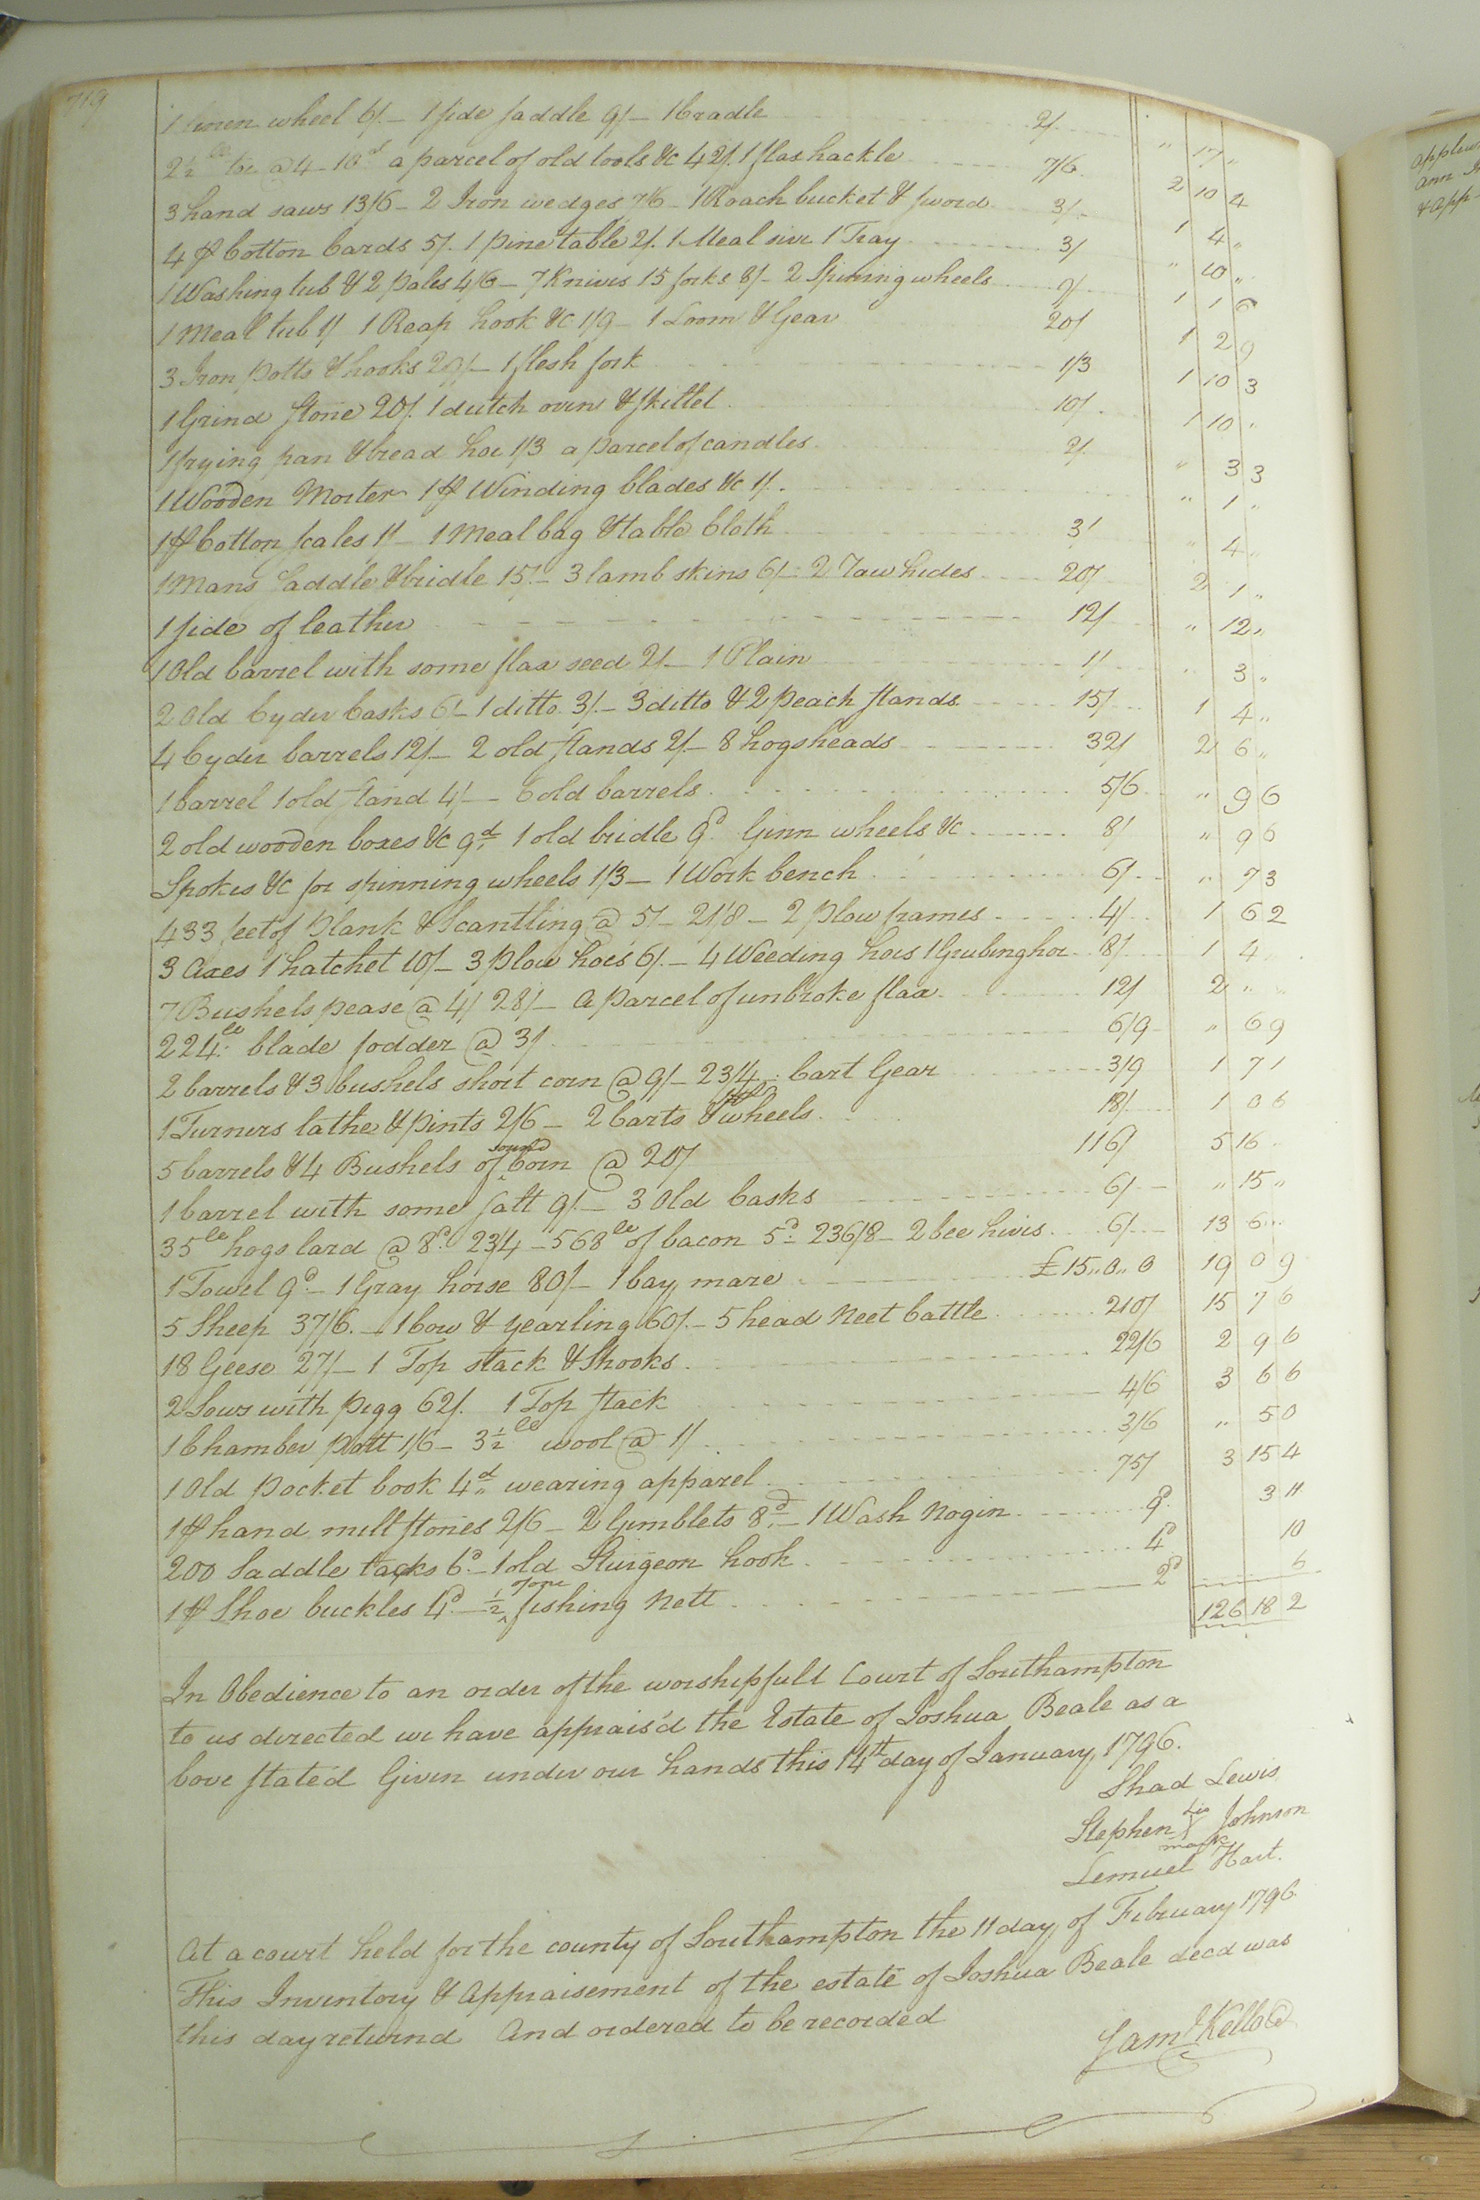 719
1 linen wheel 6/. — 1 side saddle 9/ — 1 Cradle 2/. " 17 "
2½ lb toe @ 4 - 10d a parcel of old tools &c 42/. 1 flax hackle 7/6 2 10 4
3 hand saws 13/6 — 2 Iron wedges 7/6 — 1 Roach bucket & sword 3/. 1 4 "
4 pr Cotton Cards 5/. 1 pine table 2/. 1 Meal sive 1 Tray 3/ " 10 "
1 Washing tub & 2 pales 4/6 — 7 Knives 15 forks 8/ — 2 Spinning wheels 9/ 1 1 6
1 Meal tub 1/ 1 Reap hook &c 1/9 — 1 Loom & Gear 20/ 1 2 9
3 Iron potts & hooks 29/ — 1 flesh fork 1/3 1 10 3
1 Grind stone 20/. 1 dutch oven & skillet 10/. 1 10 "
1 frying pan & bread hoe 1/3 a parcel of candles 2/ " 3 3
1 Wooden Morter 1 pr Winding blades &c 1/. " 1 "
1 pr Cotton scales 1/ — 1 Meal bag & table Cloth 3/ " 4 "
1 Mans Saddle & bridle 15/. — 3 lamb skins 6/ — 2 Taw hides 20/ 2 1 "
1 side of leather 12/ " 12 "
1 Old barrel with some flax seed 2/ — 1 Plain 1/ " 3 "
2 Old Cyder Casks 6/ — 1 ditto 3/. — 3 ditto & 2 peach stands 15/ 1 4 "
4 Cyder barrels 12/ — 2 old stands 2/ — 8 hogsheads 32/ 2 6 "
1 barrel 1 old stand 4/ — 6 old barrels 5/6 " 9 6
2 old wooden boxes &c 9d 1 old bridle 9d Ginn wheels &c 8/ " 9 6
Spokes &c for spinning wheels 1/3 — 1 Work bench 6/ " 7 3
433 feet of plank & Scantling @ 5/ — 21/8 — 2 plow frames 4/ 1 6 2
3 Axes 1 hatchet 10/ — 3 plow hoes 6/. — 4 Weeding hoes 1 Grubing hoe 8/ 1 4
7 Bushels pease @ 4/ 28/ — a parcel of unbroke flax 12/ 2 " "
224 lb blade fodder @ 3/ 6/9 " 6 9
2 barrels & 3 bushels short corn @ 9/ — 23/4 . Cart Gear 3/9 1 7 1
1 Turners lathe & pints 2/6 — 2 Carts & wheels 18/ 1 0 6
5 barrels & 4 Bushels of sound Corn @ 20/ 116/ 5 16
1 barrel with some salt 9/. — 3 Old Casks 6/ " 15 "
35 lb hogs lard @ 8d 23/4 — 568 lb of bacon 5d 236/8 — 2 bee hives 6/ 13 6 "
1 Towel 9d — 1 Gray horse 80/ — 1 bay mare £15..0..0 19 0 9
5 Sheep 37/6. — 1 Cow & yearling 60/. — 5 head Neet Cattle 210/ 15 7 6
18 Geese 27/ — 1 Top stack & Shooks 22/6 2 9 6
2 Sows with pigg 62/. 1 Top stack 4/6 3 6 6
1 Chamber pott 1/6 — 3½ lb wool @ 1/ 3/6 " 5 0
1 Old pocket book 4d wearing apparel 75/ 3 15 4
1 pr hand mill stones 2/6 — 2 Gimblets 8d — 1 Wash Nogin 9d 3 11
200 Saddle tacks 6d — 1 old Sturgeon hook 4d 10
1 pr Shoe buckles 4d — ½ of one fishing Nett 2d 6
126 18 2
In Obedience to an order of the worshipfull Court of Southampton
to us directed we have apprais'd the Estate of Joshua Beale as a
bove stated Given under our hands this 14th day of January 1796.
Shad Lewis
Stephen his X mark Johnson
Lemuel Hart.
At a court held for the county of Southampton the 11 day of February 1796
This Inventory & Appraisement of the estate of Joshua Beale decd was
this day returnd And ordered to be recorded
Saml Kello
Ann
& App